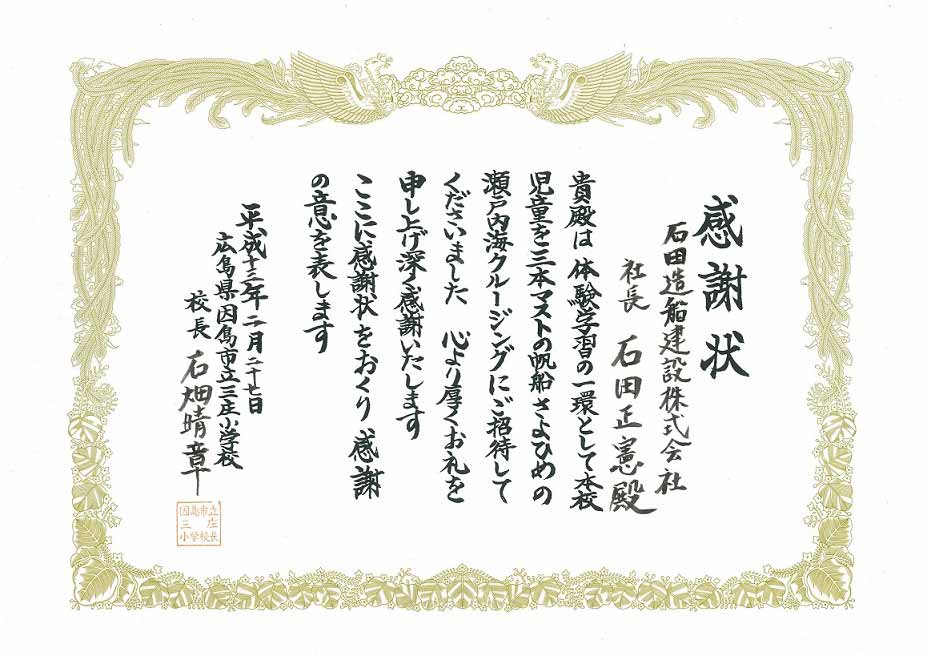 感謝状
石田造船建設株式会社
社長 石田正憲殿
貴殿は 体験学習の一環として本校
児童を三本マストの帆船 さよひめ の
瀬戸内海クルージングにご招待して
くださいました 心より厚くお礼を
申し上げ深く感謝いたします
ここに感謝状をおくり 感謝
の意を表します
平成十三年 二月 二十七日
広島県因島市立三庄小学校
校長 石畑晴章
因島市立
三庄
小学校長